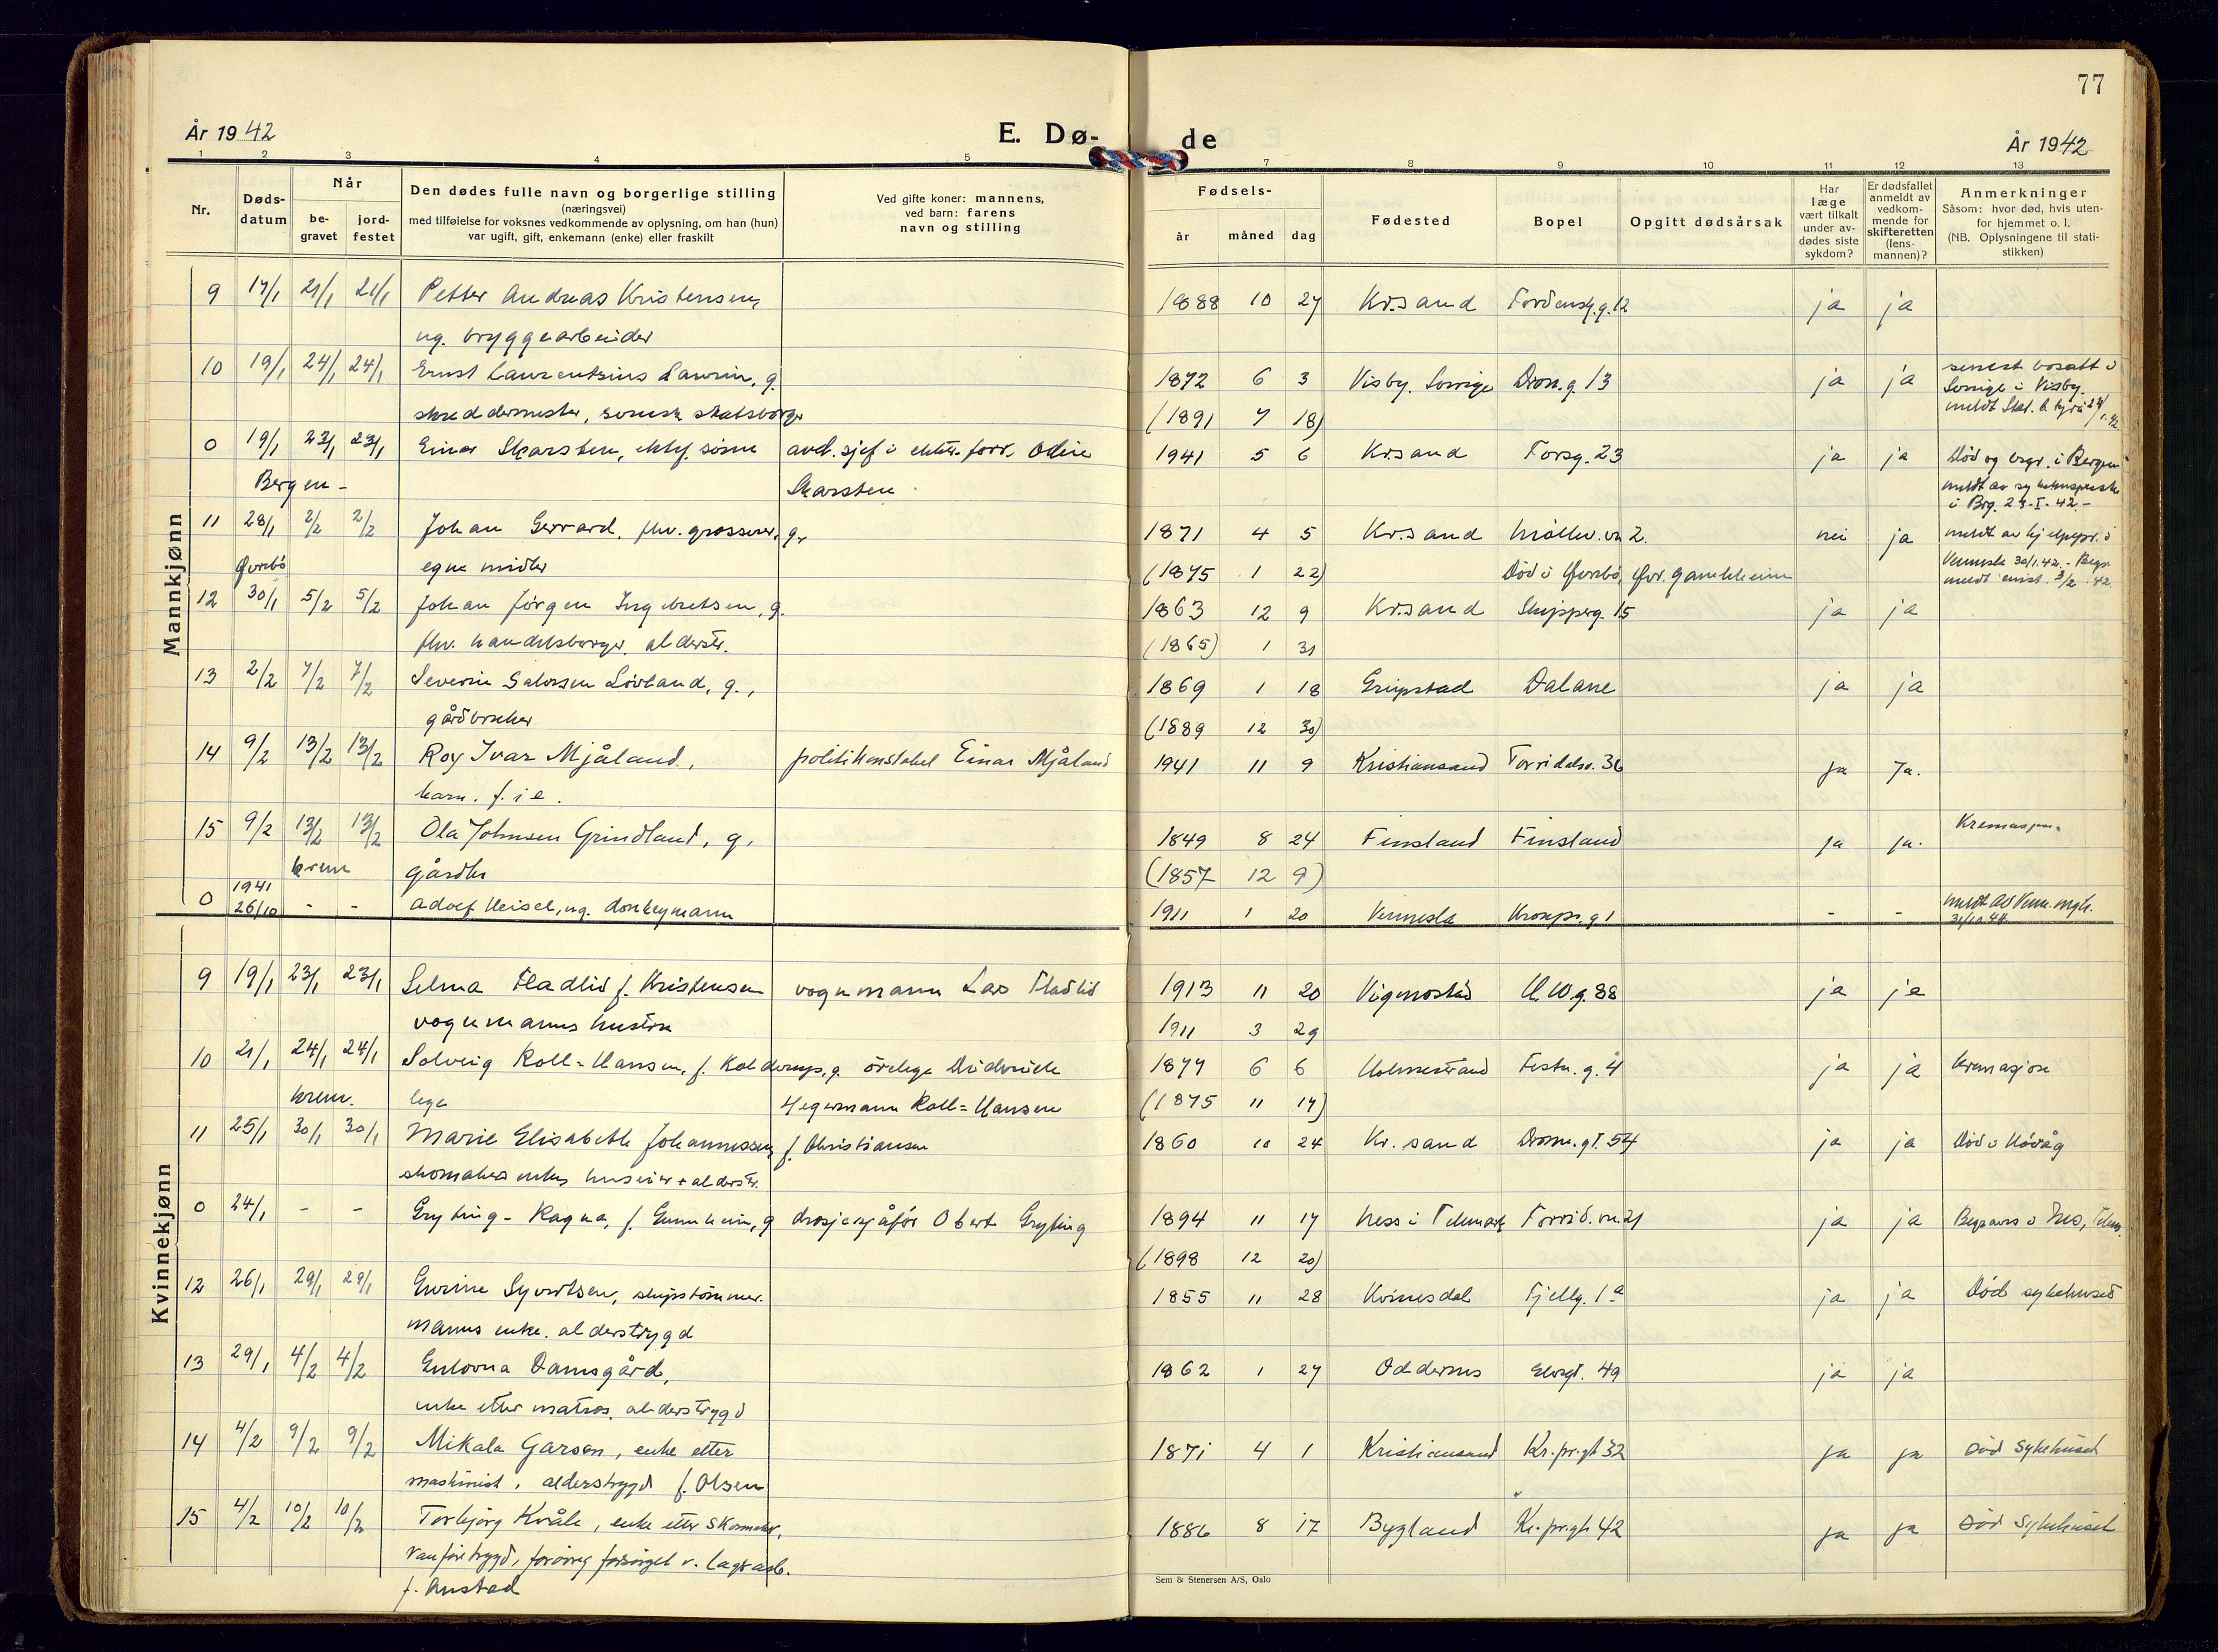 77
År 1942
E. Dø-
de
År 1942
1 2 3 4 5
7 8 9 10 11 12 13
Nr.
Døds-
datum
Når
be-
gravet
jord-
festet
Den dødes fulle navn og borgerlige stilling
(næringsvei)
med tilføielse for voksnes vedkommende av oplysning, om han (hun)
var ugift, gift, enkemann (enke) eller fraskilt
Ved gifte koner: mannens,
ved barn: farens
navn og stilling
Fødsels-
år måned dag
Fødested
Bopel
Opgitt dødsårsak
Har
læge
vært tilkalt
under av-
dødes siste
sykdom?
Er dødsfallet
anmeldt av
vedkom-
mende for
skifteretten
(lens-
mannen)?
Anmerkninger
Såsom: hvor død, hvis uten-
for hjemmet o. l.
(NB. Oplysningene til stati-
stikken)
Mannkjønn
9 17/1 21/1 21/1 Petter Andreas Kristensen, 1888 10 27 Kr.sand ja ja
ug. bryggearbeider
10 19/1 24/1 24/1 Ernst Laurentsius Laurin, g. 1872 6 3 Visby. Sverige Dronn.g. 13 ja ja senest bosatt i
Sverige i Visby.
skreddermester, svensk statsborger (1891 7 18)
0 19/1 23/1 23/1 Einar Skarstein, ektf. sønn avd. sjef i elektr. forr. Odin 1941 5 6 Kr.sand Torsg. 23 ja ja Død og begr. i Bergen
Bergen - Skarstein
i Brg. 23-I-42.-
11 28/1 2/2 2/2 Johan Gerrard, fhv. grosserer, g. 1871 4 5 Kr.sand Møllev.vn 2. nei ja
Øvrebø egne midler (1875 1 22) Død i Øvrebø,
Vennesla 30/1.42.
12 30/1 5/2 5/2 Johan Jørgen Ingebretsen, g. 1863 12 9 Kr.sand Skipperg. 15 ja ja
fhv. handelsborger, alderstr. (1865) 1 31
13 2/2 7/2 7/2 Severin Salvesen Løvland, g., 1869 1 18 Greipstad Dalane ja ja
gårdbruker (1889 12 30)
14 9/2 13/2 13/2 Roy Ivar Mjåland, politikonstabel Einar Mjåland 1941 11 9 Kristiansand Torridalsv. 36 ja Ja.
barn. f. i e.
15 9/2 13/2 13/2 Ola Johnsen Grindland, g. 1849 8 24 Finsland Finsland ja ja. Kremasjon.
krem gårdbr (1857 12 9)
1941
0 26/10 - - Adolf Heisel, ug. donkeymann 1911 1 20 Vennesla Kronpr.g 1 - -
Kvinnekjønn
9 19/1 23/1 23/1 Selma Fladlid f. Kristensen vognmann Lars Fladlid 1913 11 20 Vigmostad H.W.g. 88 ja ja
vognmanns hustru 1911 3 29
10 21/1 24/1 24/1 Solveig Roll-Hansen, f. Kolderup, g. ørelege Diderich 1877 6 6 Holmestrand Festn.g. 4 ja ja kremasjon
krem. lege Hegermann Roll-Hansen (1875 11 14)
11 25/1 30/1 30/1 Marie Elisabeth Johannessen, f. Christiansen 1860 10 24 Kr.sand Dronn.gt. 54 ja ja Død i Høvåg
skomakers enke, huseier + alderstr.
0 24/1 - - Gryting - Ragna, f. Gunnheim, g drosjesjåfør Obert Gryting 1894 11 17 Ness i Telemark Torrid.vn.21 ja ja
(1898 12 20)
12 26/1 29/1 29/1 Gurine Syvertsen, skipstømmer- 1855 11 28 Kvinesdal Fjellg. 1a ja ja Død sykehuset
manns enke. alderstrygd
13 29/1 4/2 4/2 Gulovna Damsgård, 1862 1 27 Oddernes Elvegt. 49 ja ja
enke etter matros. alderstrygd
14 4/2 9/2 9/2 Mikala Garson, enke etter 1871 4 1 Kristiansand Kr.pr.gt 32 ja ja død sykehuset
maskinist, alderstrygd f. Olsen
15 4/2 10/2 10/2 Torbjørg Kvåle, enke etter skomaker, 1886 8 17 Bygland Kr.pr.gt 42 ja ja død sykehuset
vanføretrygd, forøvrig forsørget v.
f. Austad
Sem & Stenersen A/S, Oslo